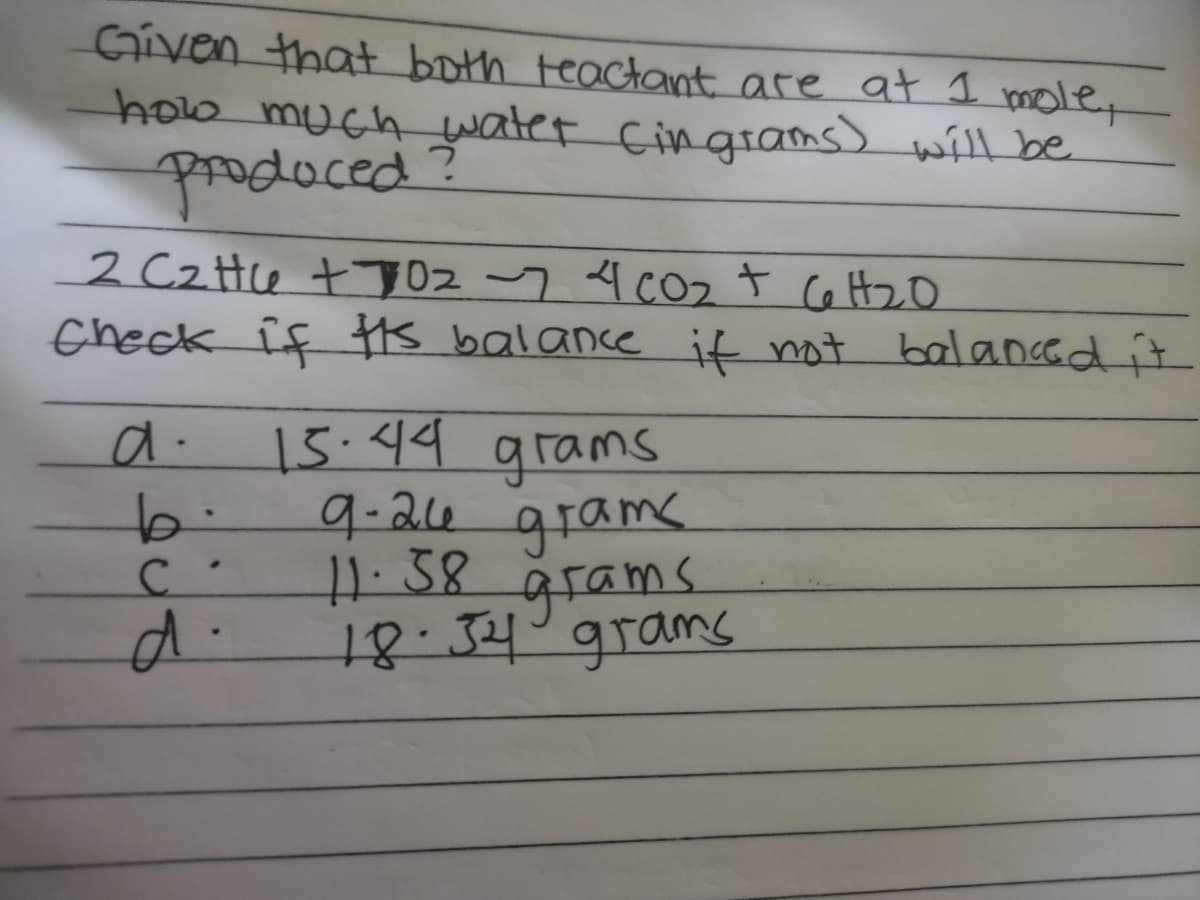 Given that both reactant are at 1 mole,
how much water (in grams) will be
produced?
2 C2H6 + 7O2 -> 4 CO2 + 6 H2O
Check if its balance if not balanced it
a. 15.44 grams
b. 9.26 grams
c. 11.58 grams
d. 18.54 grams